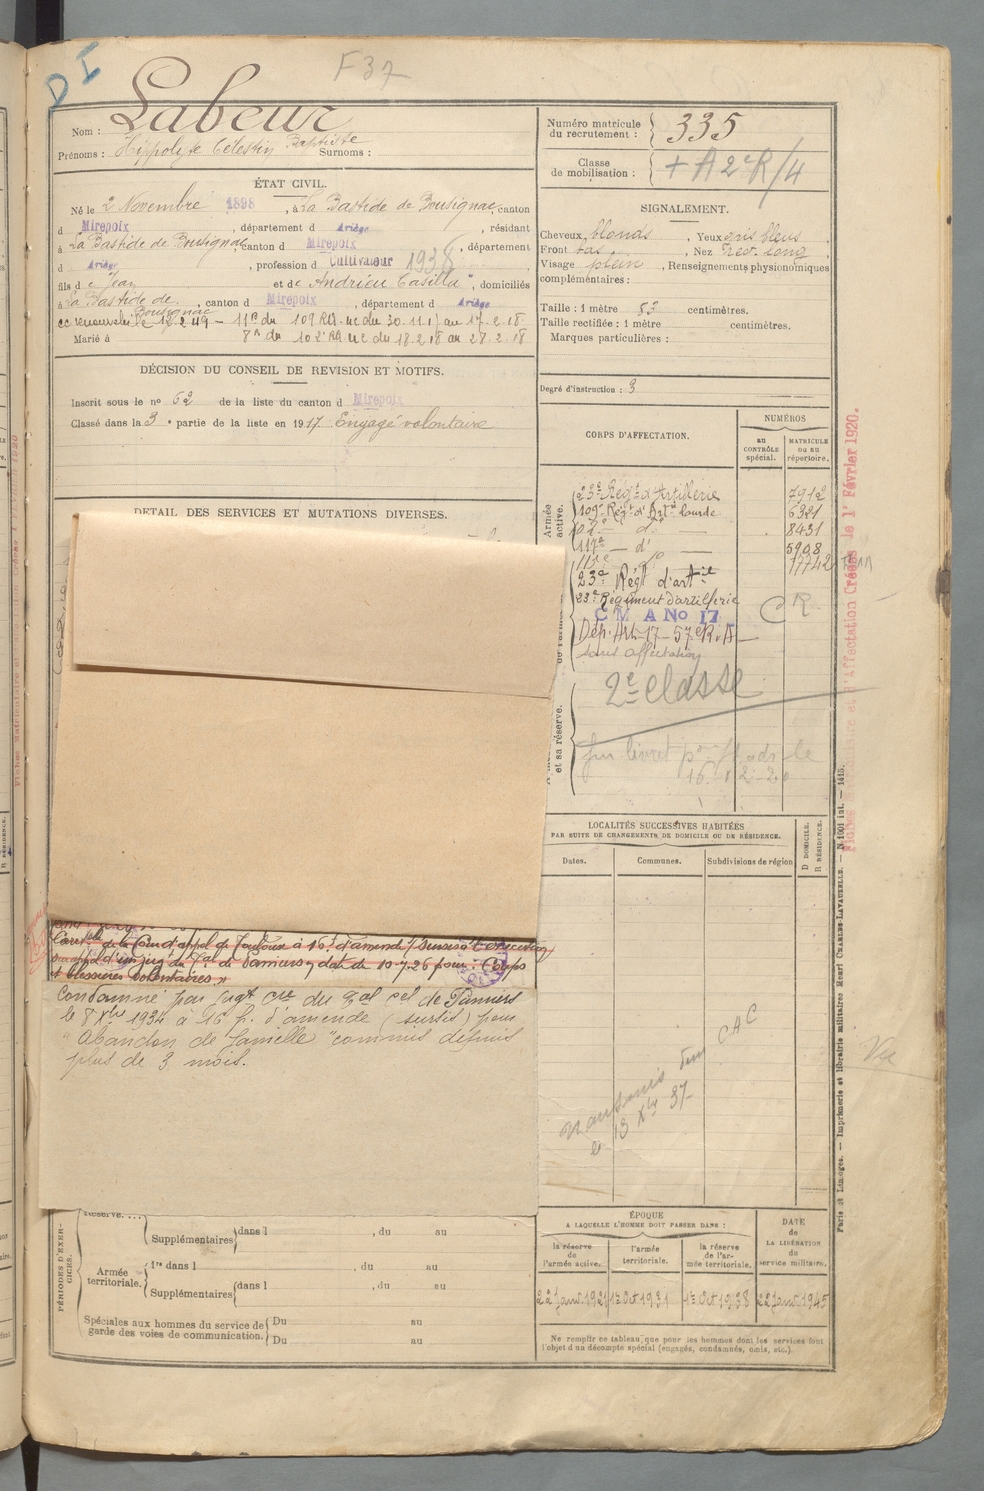 D I
F 37
Nom : Labeur
Prénoms : Hippolyte Célestin Baptiste Surnoms :
ÉTAT CIVIL.
Né le 2 Novembre 1898, à La Bastide de Bousignac, canton
d Mirepoix, département d Ariège, résidant
à La Bastide de Bousignac canton d Mirepoix, département
d Ariège, profession d Cultivateur 1938
fils d e Jean et de Andrieu Casilda, domiciliés
à La Bastide de Bousignac, canton d Mirepoix, département d Ariège
le 12.2.49 – 11e du 109 RA. du 30.11.17 au 17.2.18
Marié à 8e du 102e RA. du 18.2.18 au 28.2.18
DÉCISION DU CONSEIL DE REVISION ET MOTIFS.
Inscrit sous le no 62 de la liste du canton d Mirepoix
Classé dans la 3e partie de la liste en 1917 Engagé volontaire
DÉTAIL DES SERVICES ET MUTATIONS DIVERSES.
de la Cour d'appel de Toulouse à 16f d'amende
de Pamiers, date de 10.7.26 pour : Coups
et blessures volontaires.
Condamné par jugt du de Pamiers
le 8 Xbre 1934 à 16 f. d'amende (sursis) pour
"Abandon de famille" commis depuis
plus de 3 mois.
PÉRIODES D'EXERCICES.
Réserve....
Supplémentaires dans l , du au
Armée territoriale.
1re dans l , du au
Supplémentaires dans l , du au
Spéciales aux hommes du service de garde des voies de communication.
Du au
Du au
Numéro matricule du recrutement : 335
Classe de mobilisation : + A 2e R/4
SIGNALEMENT.
Cheveux blonds, Yeux gris bleus
Front bas, Nez rect. long
Visage plein, Renseignements physionomiques
complémentaires :
Taille : 1 mètre 83 centimètres.
Taille rectifiée : 1 mètre centimètres.
Marques particulières :
Degré d'instruction : 3
CORPS D'AFFECTATION.
NUMÉROS
au CONTRÔLE spécial.
MATRICULE ou au répertoire.
Armée active.
23e Régt d'Artillerie 7912
109e Régt d'Art. lourde 6321
102e — do — 8431
117e — do 5908
115e do 17742
23e Régt d'artie
23e Régiment d'artillerie
C M A No 17 CR
Dép. Art. 17 – 57e R.A
sans affectation
et sa réserve.
2e classe
livret
16
LOCALITÉS SUCCESSIVES HABITÉES
PAR SUITE DE CHANGEMENTS DE DOMICILE OU DE RÉSIDENCE.
Dates.
Communes.
Subdivisions de région
D DOMICILE.
R RÉSIDENCE.
CAC
le 13 Xbre 37
Vu
ÉPOQUE
A LAQUELLE L'HOMME DOIT PASSER DANS :
la réserve de l'armée active.
l'armée territoriale.
la réserve de l'armée territoriale.
DATE de LA LIBÉRATION du service militaire.
22 Janv. 1921
1er Oct 1931
1er Oct 1938
22 Janv. 1945
Ne remplir ce tableau que pour les hommes dont les services font
l'objet d'un décompte spécial (engagés, condamnés, omis, etc.).
Fiches Matriculaire et d'Affectation Créées le 1er Février 1920.
Paris et Limoges. — Imprimerie et librairie militaires Henri CHARLES-LAVAUZELLE. — N° 1601 int. — 1415.